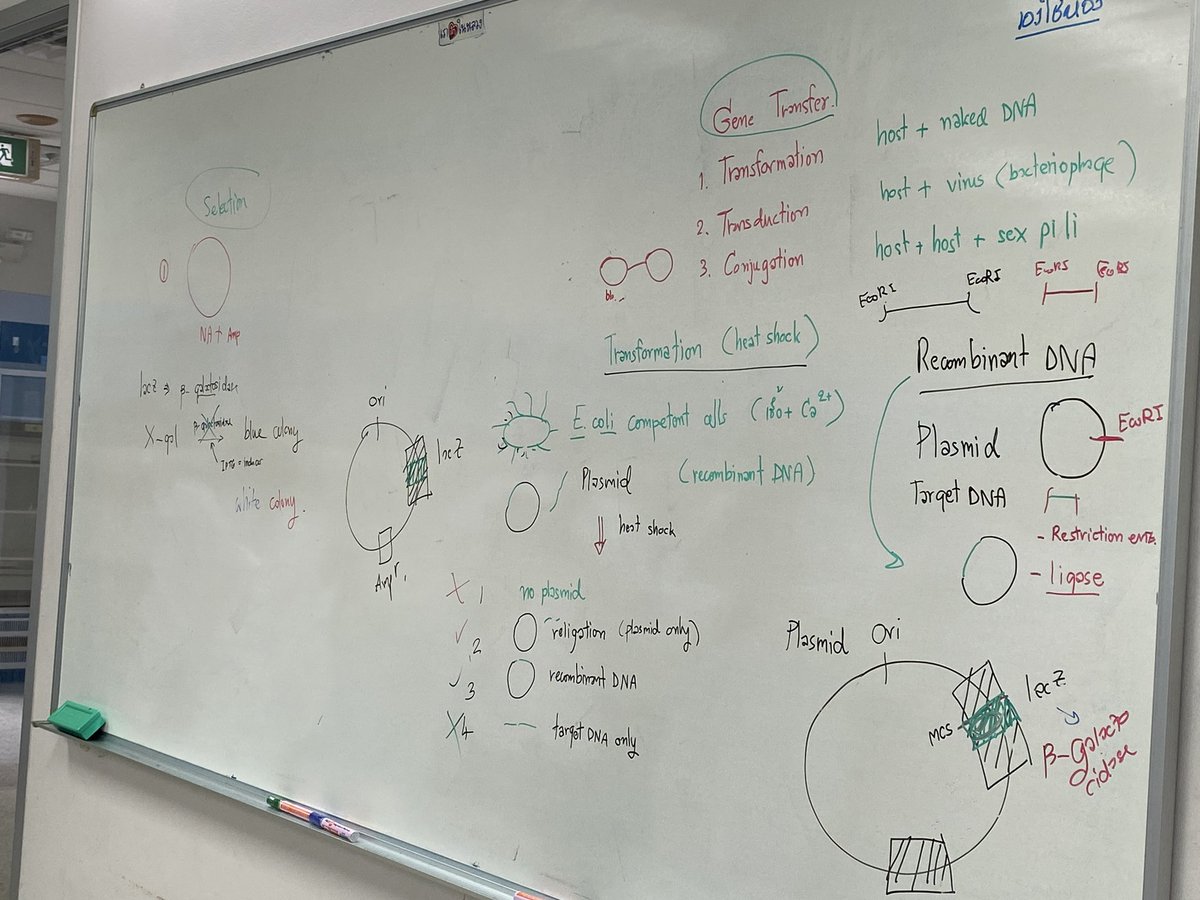 Selection
①
NA + Amp
lacZ ⇒ β-galactosidase
X-gal
blue colony
IPTG = inducer
white colony.
Ori
lacZ
Ampʳ
Gene Transfer.
1. Transformation
host + naked DNA
2. Transduction
host + virus (bacteriophage)
3. Conjugation
host + host + sex pili
EcoRI
EcoRI
EcoRI
EcoRI
Transformation (heat shock)
E. coli competent cells
Ca²⁺)
Plasmid
(recombinant DNA)
heat shock
X 1 no plasmid
✓ 2 religation (plasmid only)
✓ 3 recombinant DNA
X 4 target DNA only
Recombinant DNA
Plasmid
EcoRI
Target DNA
- Restriction
- ligase
Plasmid
Ori
lacZ
MCS
β-galacto
cidase